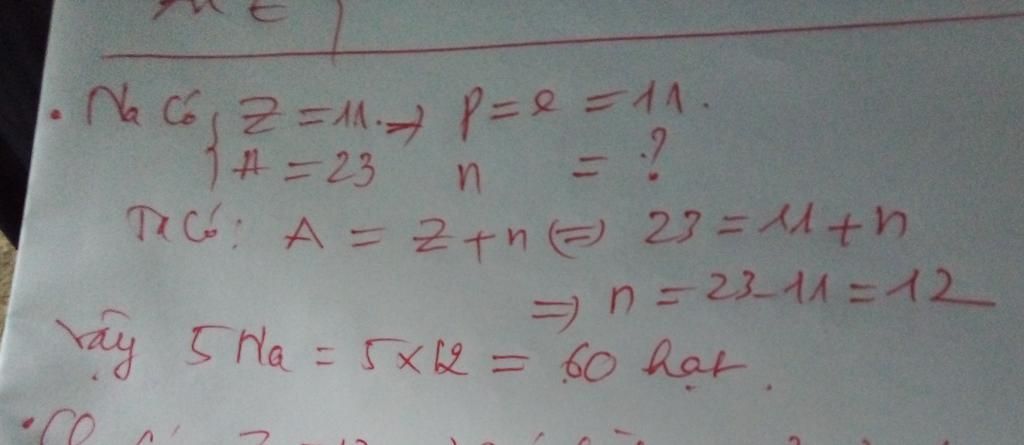 • Na có { Z = 11 → p = e = 11.
A = 23 n = ?
Ta có: A = Z + n ⇔ 23 = 11 + n
⇒ n = 23 - 11 = 12
Vậy 5 Na = 5 x 12 = 60 hạt.